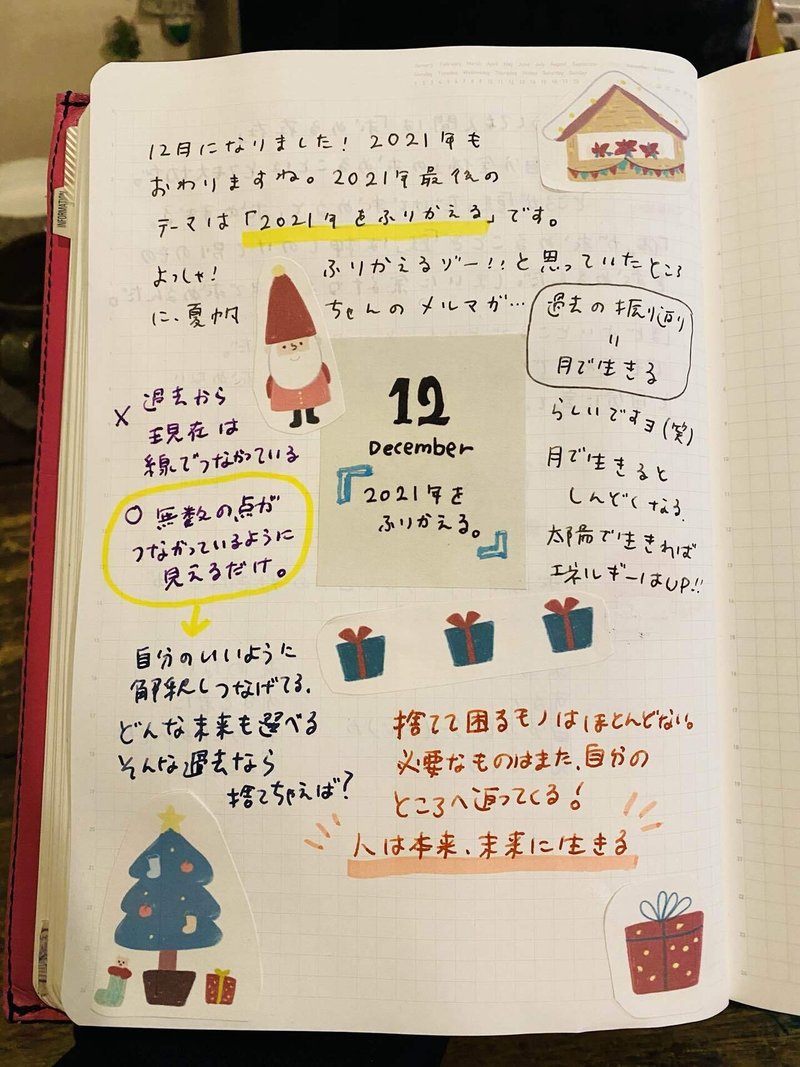 12月になりました! 2021年も
おわりますね。2021年最後の
テーマは「2021年をふりかえる」です。
よっしゃ! ふりかえるゾー!!と思っていたところ
に、夏帆ちゃんのメルマガ…
過去の振り返り
=
月で生きる
らしいですヨ(笑)
月で生きると
しんどくなる.
太陽で生きれば
エネルギーはUP!!
12
December
『2021年を
ふりかえる。』
× 過去から
現在は
線でつながっている
○ 無数の点が
つながっているように
見えるだけ。
自分のいいように
解釈しつなげてる.
どんな未来も選べる
そんな過去なら
捨てちゃえば?
捨てて困るモノはほとんどない。
必要なものはまた、自分の
ところへ返ってくる!
人は本来、未来に生きる
INFORMATION